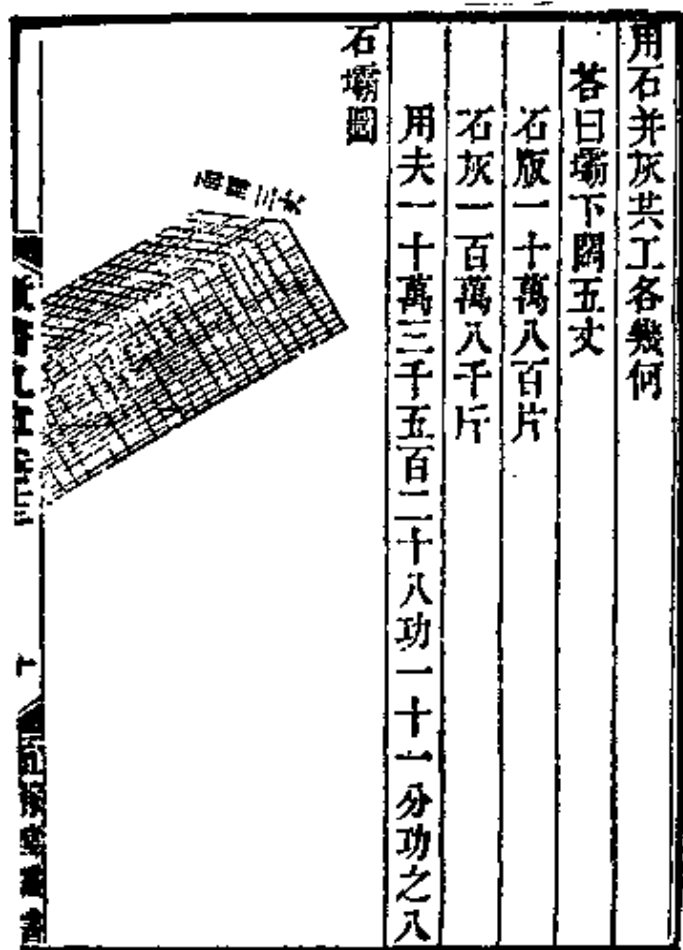 用石并灰共工各幾何
荅曰壩下闊五丈
石版一十萬八百片
石灰一百萬八千斤
用夫一十萬三千五百二十八功一十一分功之八
石壩圖
面闊三丈